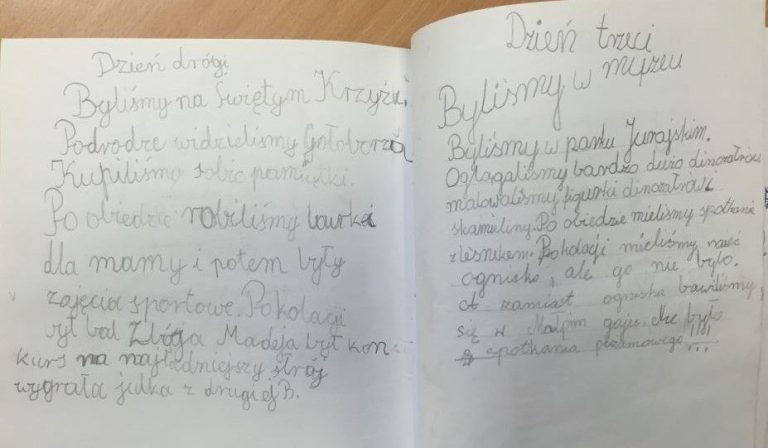 Dzień drógi
Byliśmy na Świętym Krzyżu.
Podrodze widzieliśmy Gołoborza
Kupiliśmy sobie pamiątki.
Po obiedzie robiliśmy laurki
dla mamy i potem były
zajęcia sportowe. Pokolacji
był bal Zbója Madeja był kon-
kurs na najładniejszy strój
wygrała julka z drugiej B.
Dzień trzeci
Byliśmy w myzeu
Byliśmy w parku Jurajskim.
Oglągaliśmy bardzo dużo dinozałrów
malowaliśmy figurki dinozałrów i
skamieliny. Po obiedzie mieliśmy spotkanie
z leśnikem. Pokolacji mieliśmy mieć
ognisko, ale go nie było.
A zamiast ogniska bawiliśmy
się w Małpim gaju. Nie było
spotkania piżamowego!!!